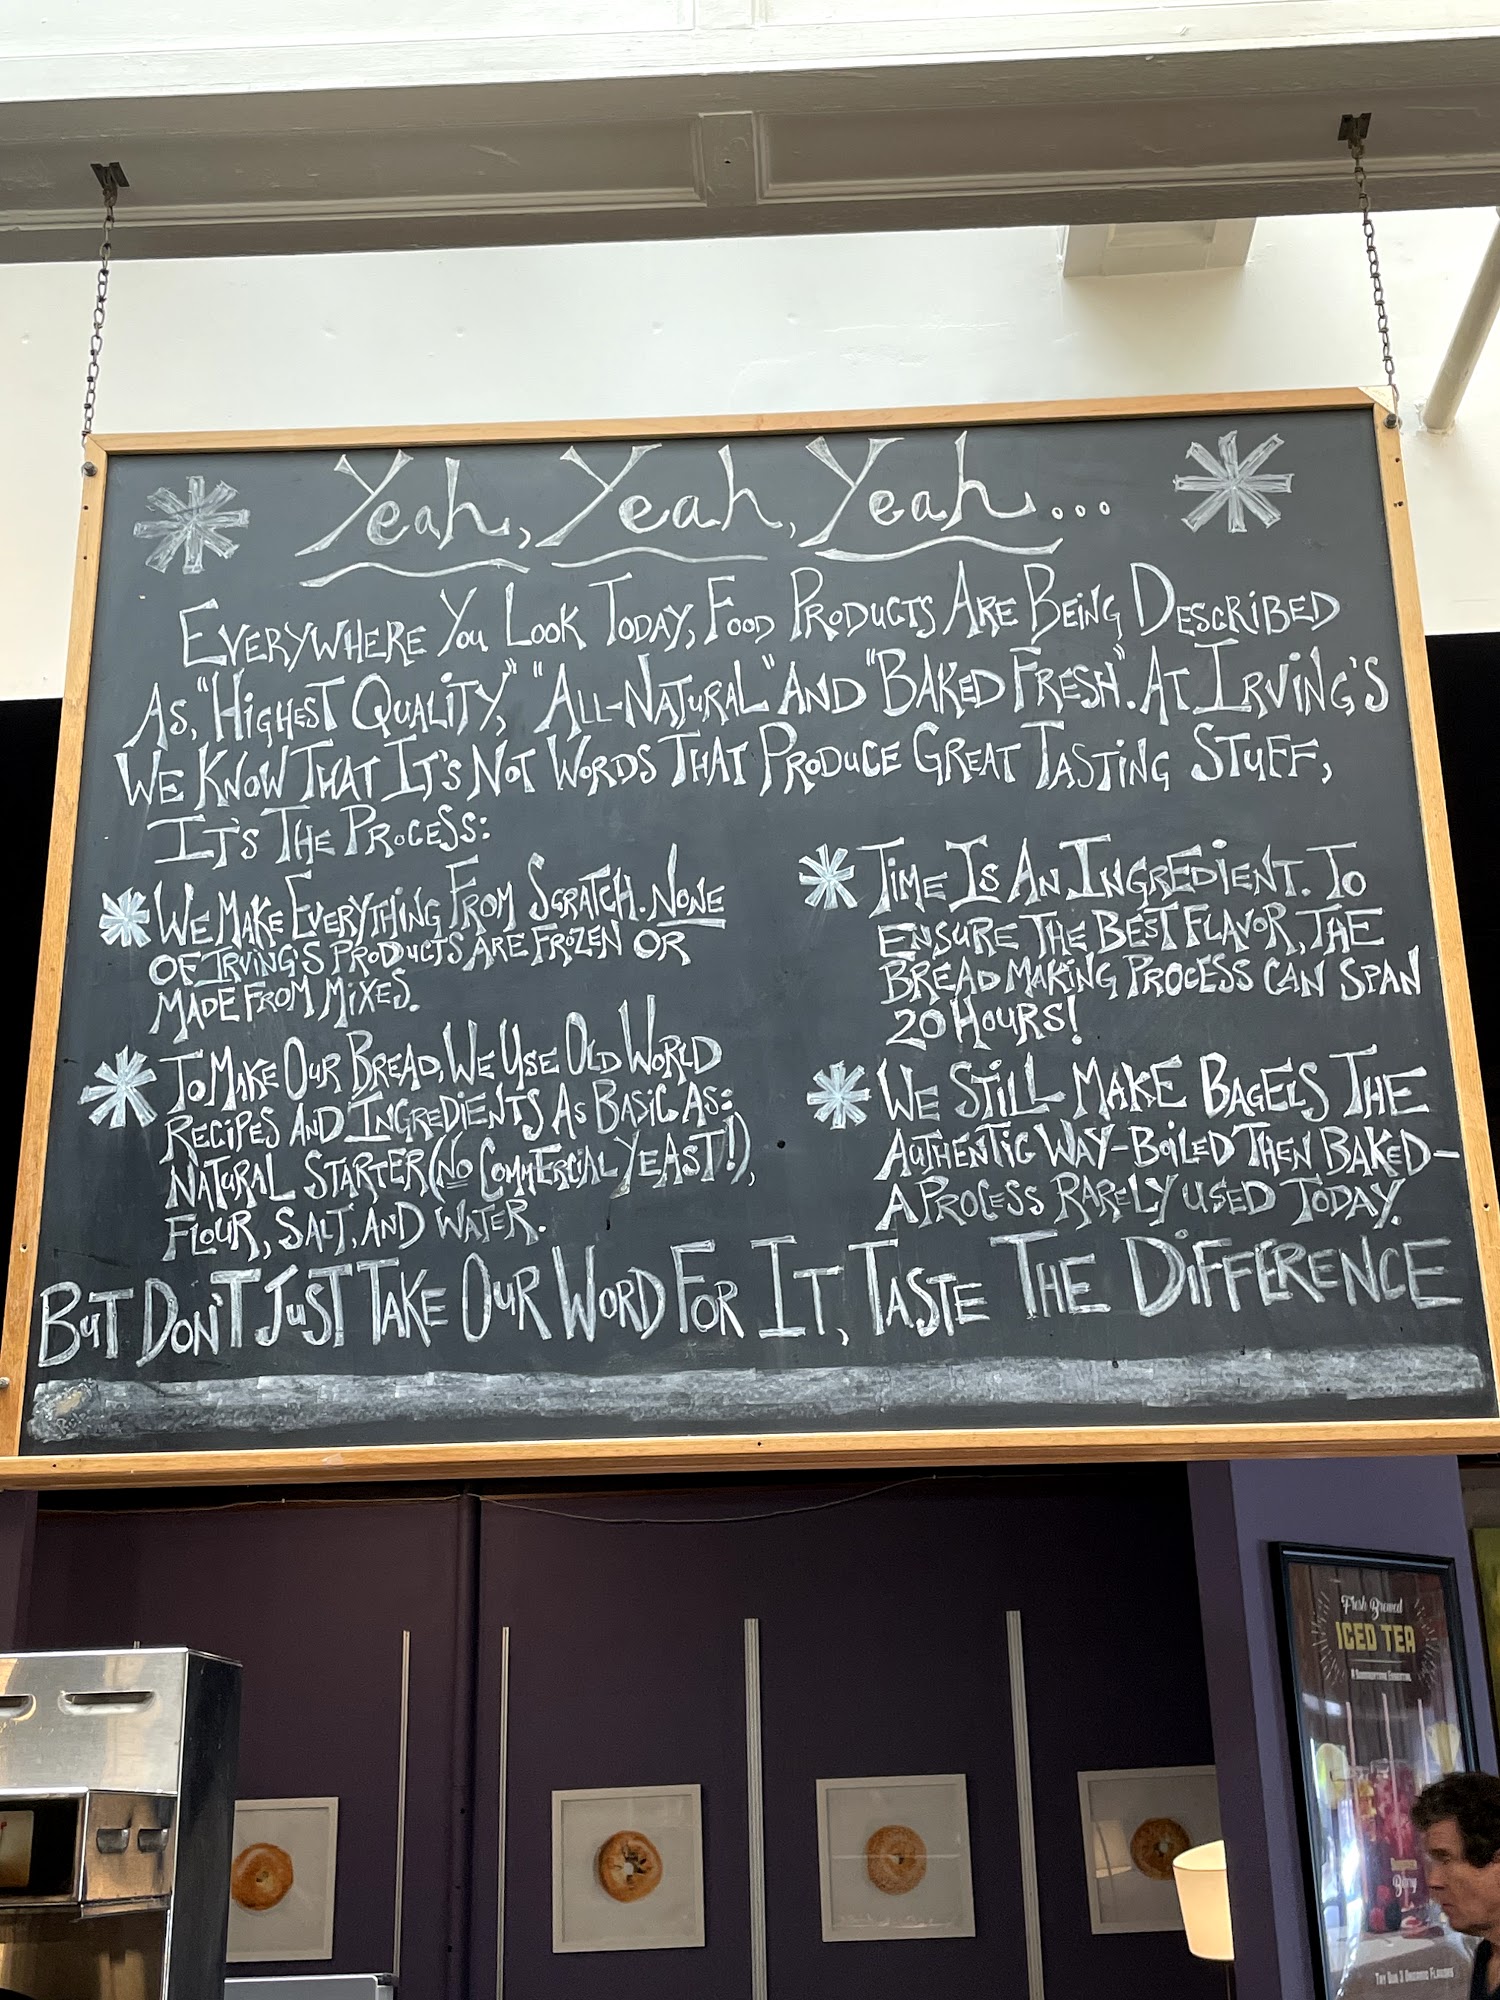 Yeah, Yeah, Yeah...
Everywhere You Look Today, Food Products Are Being Described
As, "Highest Quality," "All-Natural" And "Baked Fresh". At Irving's
We Know That It's Not Words That Produce Great Tasting Stuff,
It's The Process:
We Make Everything From Scratch. None
Of Irving's Products Are Frozen Or
Made From Mixes.
To Make Our Bread, We Use Old World
Recipes And Ingredients As Basic As:
Natural Starter (No Commercial Yeast!),
Flour, Salt, And Water.
Time Is An Ingredient. To
Ensure The Best Flavor, The
Bread Making Process Can Span
20 Hours!
We Still Make Bagels The
Authentic Way-Boiled Then Baked-
A Process Rarely Used Today.
But Don't Just Take Our Word For It, Taste The Difference
Fresh Brewed
ICED TEA